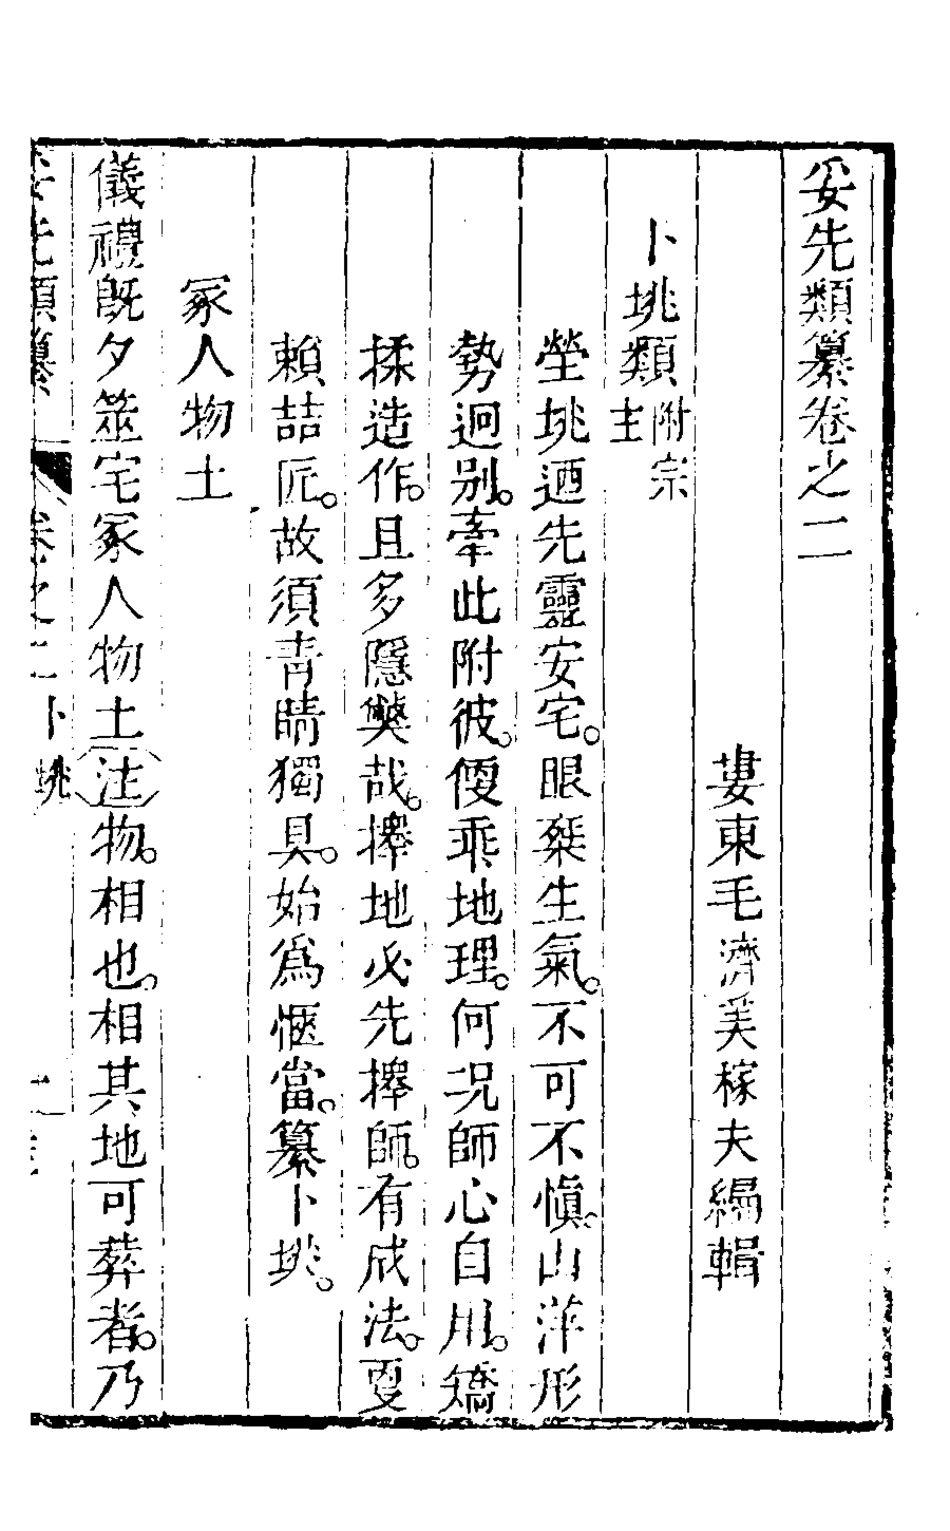 妥先類纂卷之二
婁東毛濟美稼夫編輯
卜垗類附宗主
塋垗迺先靈安宅。眼椉生氣。不可不慎。山萍形
勢迥别。牽此附彼。偠乖地理。何况師心自用。矯
揉造作。且多隱獘哉。擇地必先擇師。有成法。叓
賴喆匠。故須青睛獨具。始爲愜當。纂卜垗。
冢人物土
儀禮旣夕筮宅冢人物土注物。相也。相其地可葬者。乃
妥先類纂 卷之二 卜垗